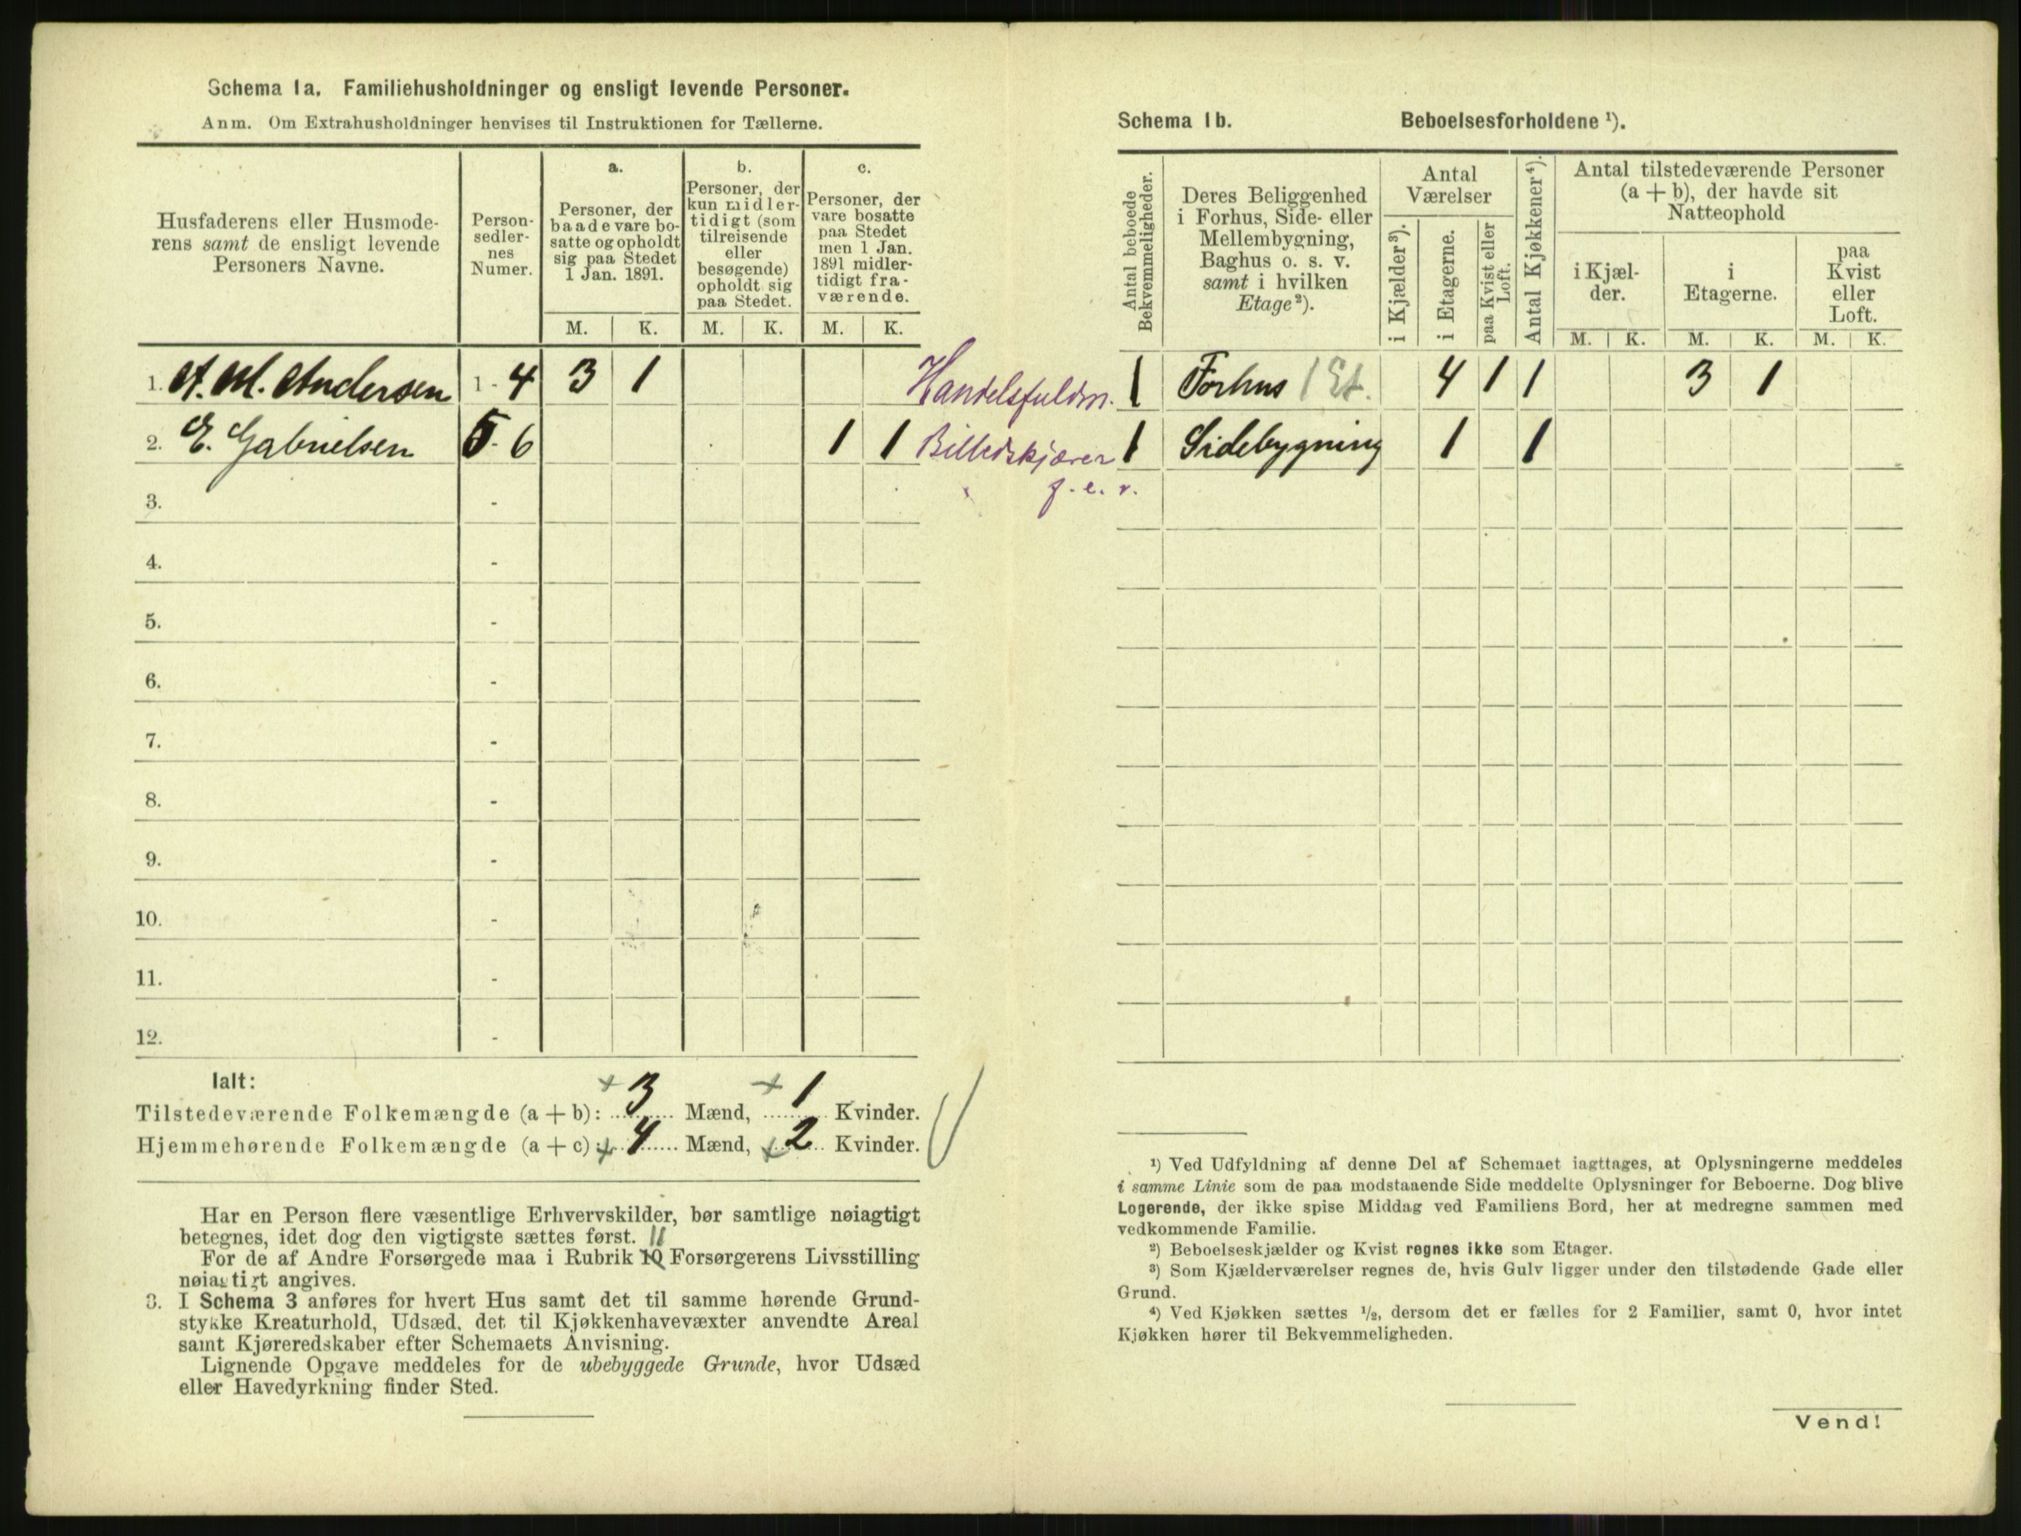 Schema 1a. Familiehusholdninger og ensligt levende Personer.
Anm. Om Extrahusholdninger henvises til Instruktionen for Tællerne.
Husfaderens eller Husmode-
rens samt de ensligt levende
Personers Navne.
Person-
sedler-
nes
Numer.
a.
Personer, der
baade vare bo-
satte og opholdt
sig paa Stedet
1 Jan. 1891.
b.
Personer, der
kun midler-
tidigt (som
tilreisende
eller
besøgende)
opholdt sig
paa Stedet.
c.
Personer, der
vare bosatte
paa Stedet
men 1 Jan.
1891 midler-
tidigt fra-
værende.
M. K. M. K. M. K.
1. A. M. Andersen 1 - 4 3 1 Handelsfuldm.
2. E. Gabrielsen 5 - 6 1 1 Billedskjærer
f. e. r.
3. -
4. -
5. -
6. -
7. -
8. -
9. -
10. -
11. -
12. -
Ialt:
Tilstedeværende Folkemængde (a + b): 3 Mænd, 1 Kvinder.
Hjemmehørende Folkemængde (a + c): 4 Mænd, 2 Kvinder.
Har en Person flere væsentlige Erhvervskilder, bør samtlige nøiagtigt
betegnes, idet dog den vigtigste sættes først. 11
For de af Andre Forsørgede maa i Rubrik 10 Forsørgerens Livsstilling
nøiagtigt angives.
3. I Schema 3 anføres for hvert Hus samt det til samme hørende Grund-
stykke Kreaturhold, Udsæd, det til Kjøkkenhavevæxter anvendte Areal
samt Kjøreredskaber efter Schemaets Anvisning.
Lignende Opgave meddeles for de ubebyggede Grunde, hvor Udsæd
eller Havedyrkning finder Sted.
Schema 1b. Beboelsesforholdene ¹).
Antal beboede
Bekvemmeligheder.
Deres Beliggenhed
i Forhus, Side- eller
Mellembygning,
Baghus o. s. v.
samt i hvilken
Etage ²).
Antal
Værelser
i Kjælder ³).
i Etagerne.
paa Kvist eller
Loft.
Antal Kjøkkener ⁴).
Antal tilstedeværende Personer
(a + b), der havde sit
Natteophold
i Kjæl-
der.
i
Etagerne.
paa
Kvist
eller
Loft.
M. K. M. K. M. K.
1 Forhus 1 Et. 4 1 1 3 1
1 Sidebygning 1 1
¹) Ved Udfyldning af denne Del af Schemaet iagttages, at Oplysningerne meddeles
i samme Linie som de paa modstaaende Side meddelte Oplysninger for Beboerne. Dog blive
Logerende, der ikke spise Middag ved Familiens Bord, her at medregne sammen med
vedkommende Familie.
²) Beboelseskjælder og Kvist regnes ikke som Etager.
³) Som Kjælderværelser regnes de, hvis Gulv ligger under den tilstødende Gade eller
Grund.
⁴) Ved Kjøkken sættes ½, dersom det er fælles for 2 Familier, samt 0, hvor intet
Kjøkken hører til Bekvemmeligheden.
Vend!